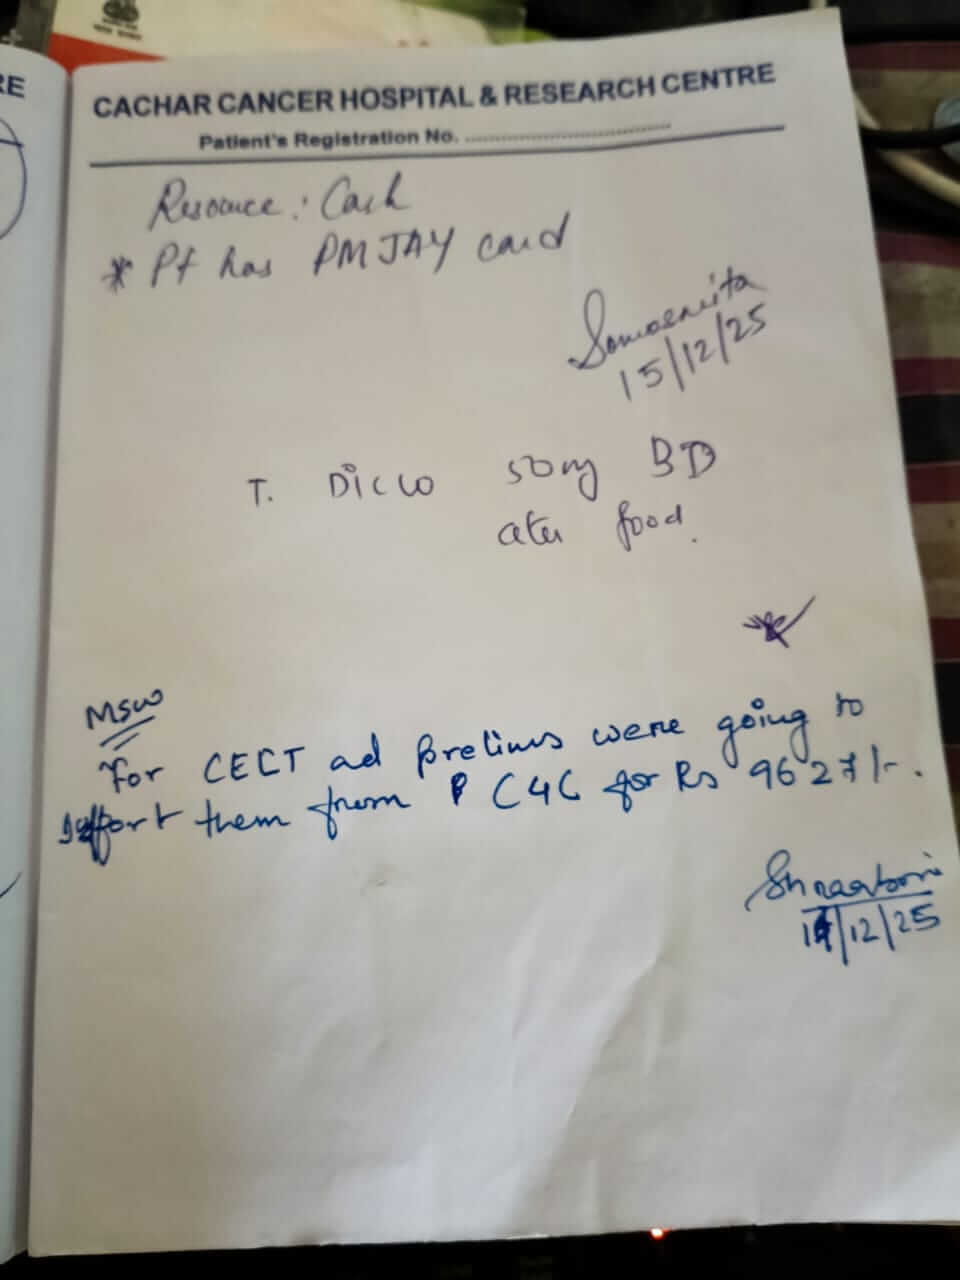 RE
CACHAR CANCER HOSPITAL & RESEARCH CENTRE
Patient's Registration No. ................................
Resource : Cash
* Pt has PMJAY card
15/12/25
T. Diclo 50mg BD
ater food.
MSW
For CECT ad prelims were going to
support them from C4C for Rs 9627/-.
/12/25